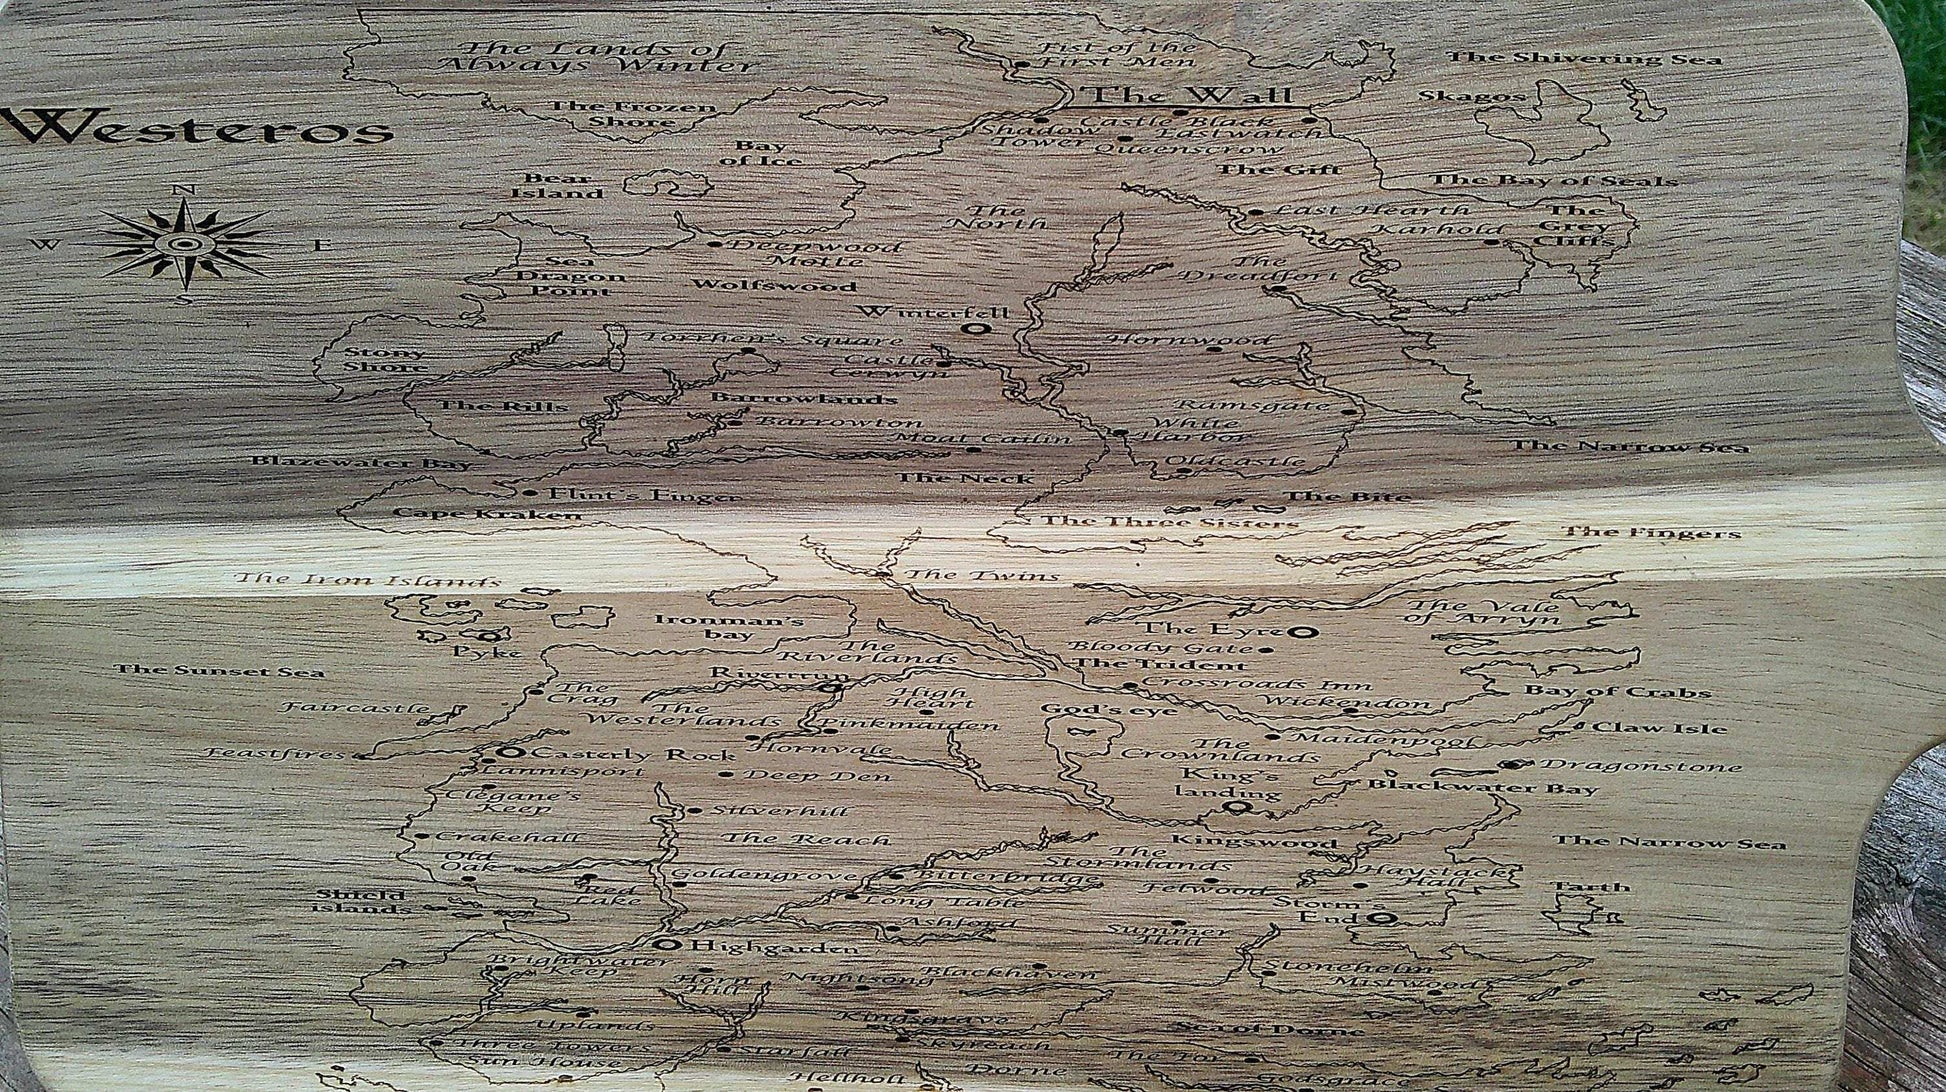 The Lands of
Always Winter
Fist of the
First Men
The Shivering Sea
Westeros
The Frozen
Shore
The Wall
Skagos
Shadow
Tower
Castle Black
Eastwatch
Queenscrow
Bay
of Ice
The Gift
The Bay of Seals
N
W
E
S
Bear
Island
The
North
Last Hearth
Karhold
The
Grey
Cliffs
Deepwood
Motte
Sea
Dragon
Point
Wolfswood
The
Dreadfort
Winterfell
Stony
Shore
Torrhen's Square
Castle
Cerwyn
Hornwood
The Rills
Barrowlands
Barrowton
Ramsgate
White
Harbor
Moat Cailin
Oldcastle
The Narrow Sea
Blazewater Bay
The Neck
Flint's Finger
Cape Kraken
The Bite
The Three Sisters
The Fingers
The Iron Islands
The Twins
The Vale
of Arryn
Ironman's
bay
Pyke
The Eyre
Bloody Gate
The
Riverlands
The Trident
The Sunset Sea
Riverrrun
Crossroads Inn
Bay of Crabs
The
Crag
High
Heart
Wickendon
Faircastle
The
Westerlands
Pinkmaiden
God's eye
Claw Isle
Feastfires
Casterly Rock
Hornvale
The
Crownlands
Maidenpool
Lannisport
Deep Den
King's
landing
Dragonstone
Blackwater Bay
Clegane's
Keep
Silverhill
Crakehall
The Reach
Kingswood
The Narrow Sea
Old
Oak
The
Stormlands
Goldengrove
Bitterbridge
Haystack
Hall
Red
Lake
Felwood
Tarth
Shield
islands
Long Table
Storm's
End
Ashford
Summer
Hall
Highgarden
Brightwater
Keep
Horn
Hill
Nightsong
Blackhaven
Stonehelm
Mistwood
Uplands
Kingsgrave
Sea of Dorne
Three Towers
Starfall
Skyreach
The Tor
Sun House
Dorne
Hellholt
Godsgrace